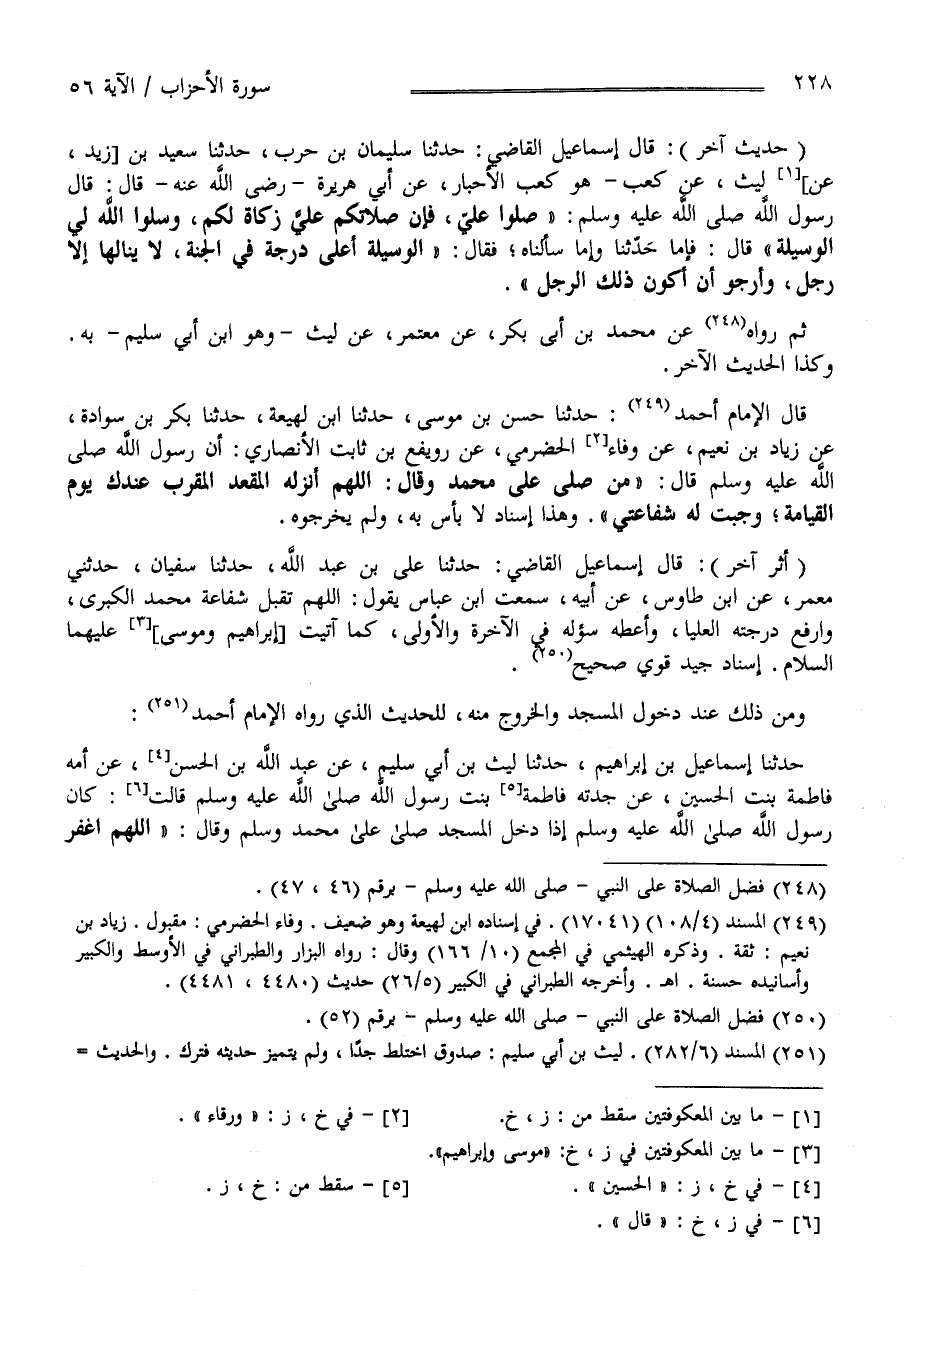 ٢٢٨
سورة الأحزاب / الآية ٥٦
( حديث آخر ) : قال إسماعيل القاضي : حدثنا سليمان بن حرب ، حدثنا سعيد بن [زيد ،
عن][١] ليث ، عن كعب - هو كعب الأحبار ، عن أبي هريرة - رضى الله عنه - قال : قال
رسول الله صلى الله عليه وسلم : « صلوا عليّ ، فإن صلاتكم عليَّ زكاة لكم ، وسلوا الله لي
الوسيلة » قال : فإما حَدّثنا وإما سألناه ؛ فقال : « الوسيلة أعلى درجة في الجنة ، لا ينالها إلا
رجل ، وأرجو أن أكون ذلك الرجل » .
ثم رواه(٢٤٨) عن محمد بن أبى بكر ، عن معتمر ، عن ليث - وهو ابن أبي سليم - به .
وكذا الحديث الآخر .
قال الإمام أحمد(٢٤٩) : حدثنا حسن بن موسى ، حدثنا ابن لهيعة ، حدثنا بكر بن سوادة ،
عن زياد بن نعيم ، عن وفاء[٢] الحضرمي ، عن رويفع بن ثابت الأنصاري : أن رسول الله صلى
الله عليه وسلم قال : « من صلى على محمد وقال : اللهم أنزله المقعد المقرب عندك يوم
القيامة ؛ وجبت له شفاعتي » . وهذا إسناد لا بأس به ، ولم يخرجوه .
( أثر آخر ) : قال إسماعيل القاضي : حدثنا على بن عبد الله ، حدثنا سفيان ، حدثني
معمر ، عن ابن طاوس ، عن أبيه ، سمعت ابن عباس يقول : اللهم تقبل شفاعة محمد الكبرى ،
وارفع درجته العليا ، وأعطه سؤله في الآخرة والأولى ، كما آتيت [إبراهيم وموسى][٣] عليهما
السلام . إسناد جيد قوي صحيح(٢٥٠) .
ومن ذلك عند دخول المسجد والخروج منه ، للحديث الذي رواه الإمام أحمد(٢٥١) :
حدثنا إسماعيل بن إبراهيم ، حدثنا ليث بن أبي سليم ، عن عبد الله بن الحسن[٤] ، عن أمه
فاطمة بنت الحسين ، عن جدته فاطمة[٥] بنت رسول الله صلى الله عليه وسلم قالت[٦] : كان
رسول الله صلى الله عليه وسلم إذا دخل المسجد صلى على محمد وسلم وقال : « اللهم اغفر
(٢٤٨) فضل الصلاة على النبي - صلى الله عليه وسلم - برقم (٤٦ ، ٤٧) .
(٢٤٩) المسند (١٠٨/٤) (١٧٠٤١) . في إسناده ابن لهيعة وهو ضعيف . وفاء الحضرمي : مقبول . زياد بن
نعيم : ثقة . وذكره الهيثمي في المجمع (١٠/ ١٦٦) وقال : رواه البزار والطبراني في الأوسط والكبير
وأسانيده حسنة . اهـ . وأخرجه الطبراني في الكبير (٢٦/٥) حديث (٤٤٨٠ ، ٤٤٨١) .
(٢٥٠) فضل الصلاة على النبي - صلى الله عليه وسلم - برقم (٥٢) .
(٢٥١) المسند (٢٨٢/٦) . ليث بن أبي سليم : صدوق اختلط جدًّا ، ولم يتميز حديثه فترك . والحديث =
[١] - ما بين المعكوفتين سقط من : ز ، خ . [٢] - في خ ، ز : « ورقاء » .
[٣] - ما بين المعكوفتين في ز ، خ : «موسى وإبراهيم» .
[٤] - في خ ، ز : « الحسين » . [٥] - سقط من : خ ، ز .
[٦] - في ز ، خ : « قال » .